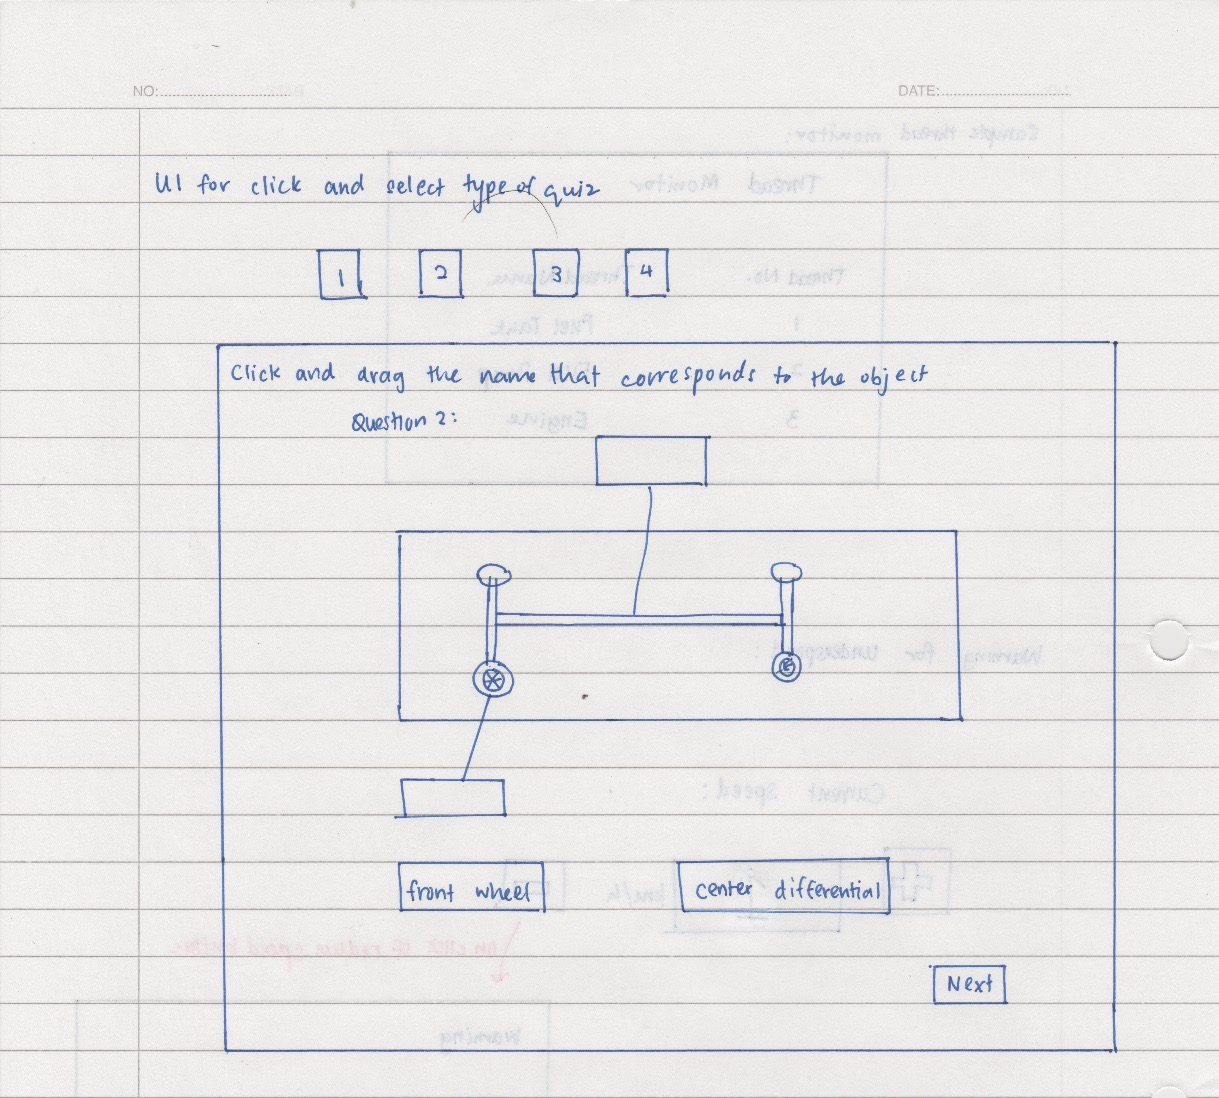 NO:
DATE:
UI for click and select type of quiz
1 2 3 4
Click and drag the name that corresponds to the object
Question 2:
front wheel
center differential
Next